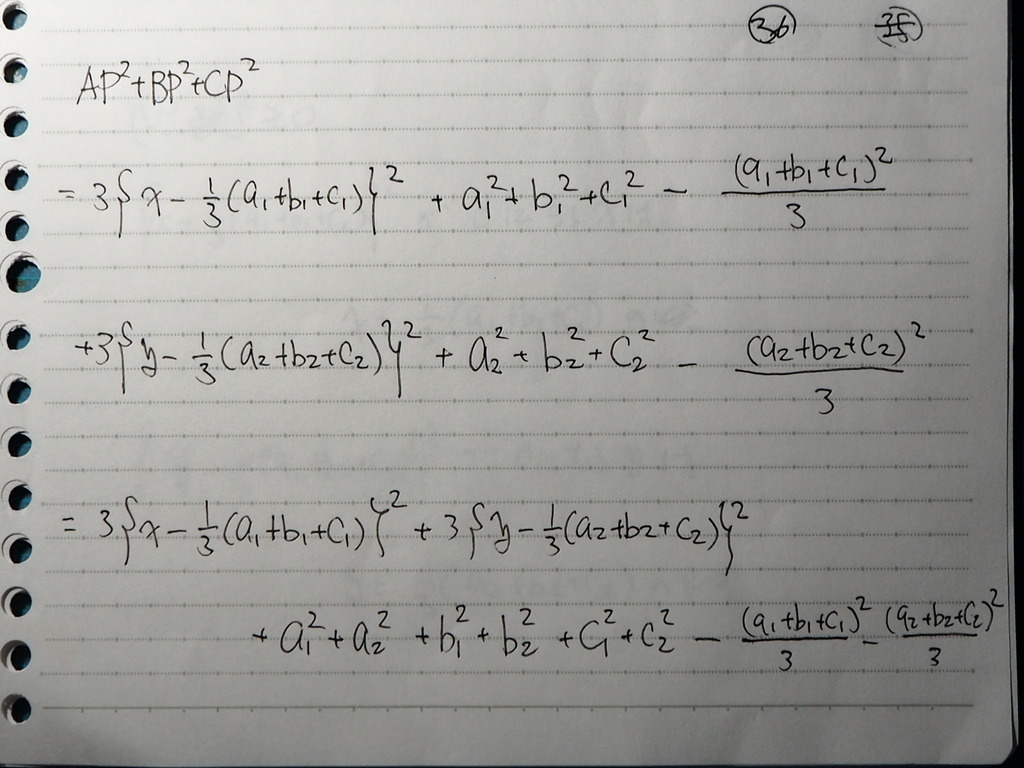 ㊱ 35
AP²+BP²+CP²
= 3{x - 1/3(a₁+b₁+c₁)}² + a₁²+b₁²+c₁² - (a₁+b₁+c₁)²/3
+3{y - 1/3(a₂+b₂+c₂)}² + a₂²+b₂²+c₂² - (a₂+b₂+c₂)²/3
= 3{x - 1/3(a₁+b₁+c₁)}² + 3{y - 1/3(a₂+b₂+c₂)}²
+ a₁²+a₂²+b₁²+b₂²+c₁²+c₂² - (a₁+b₁+c₁)²/3 - (a₂+b₂+c₂)²/3